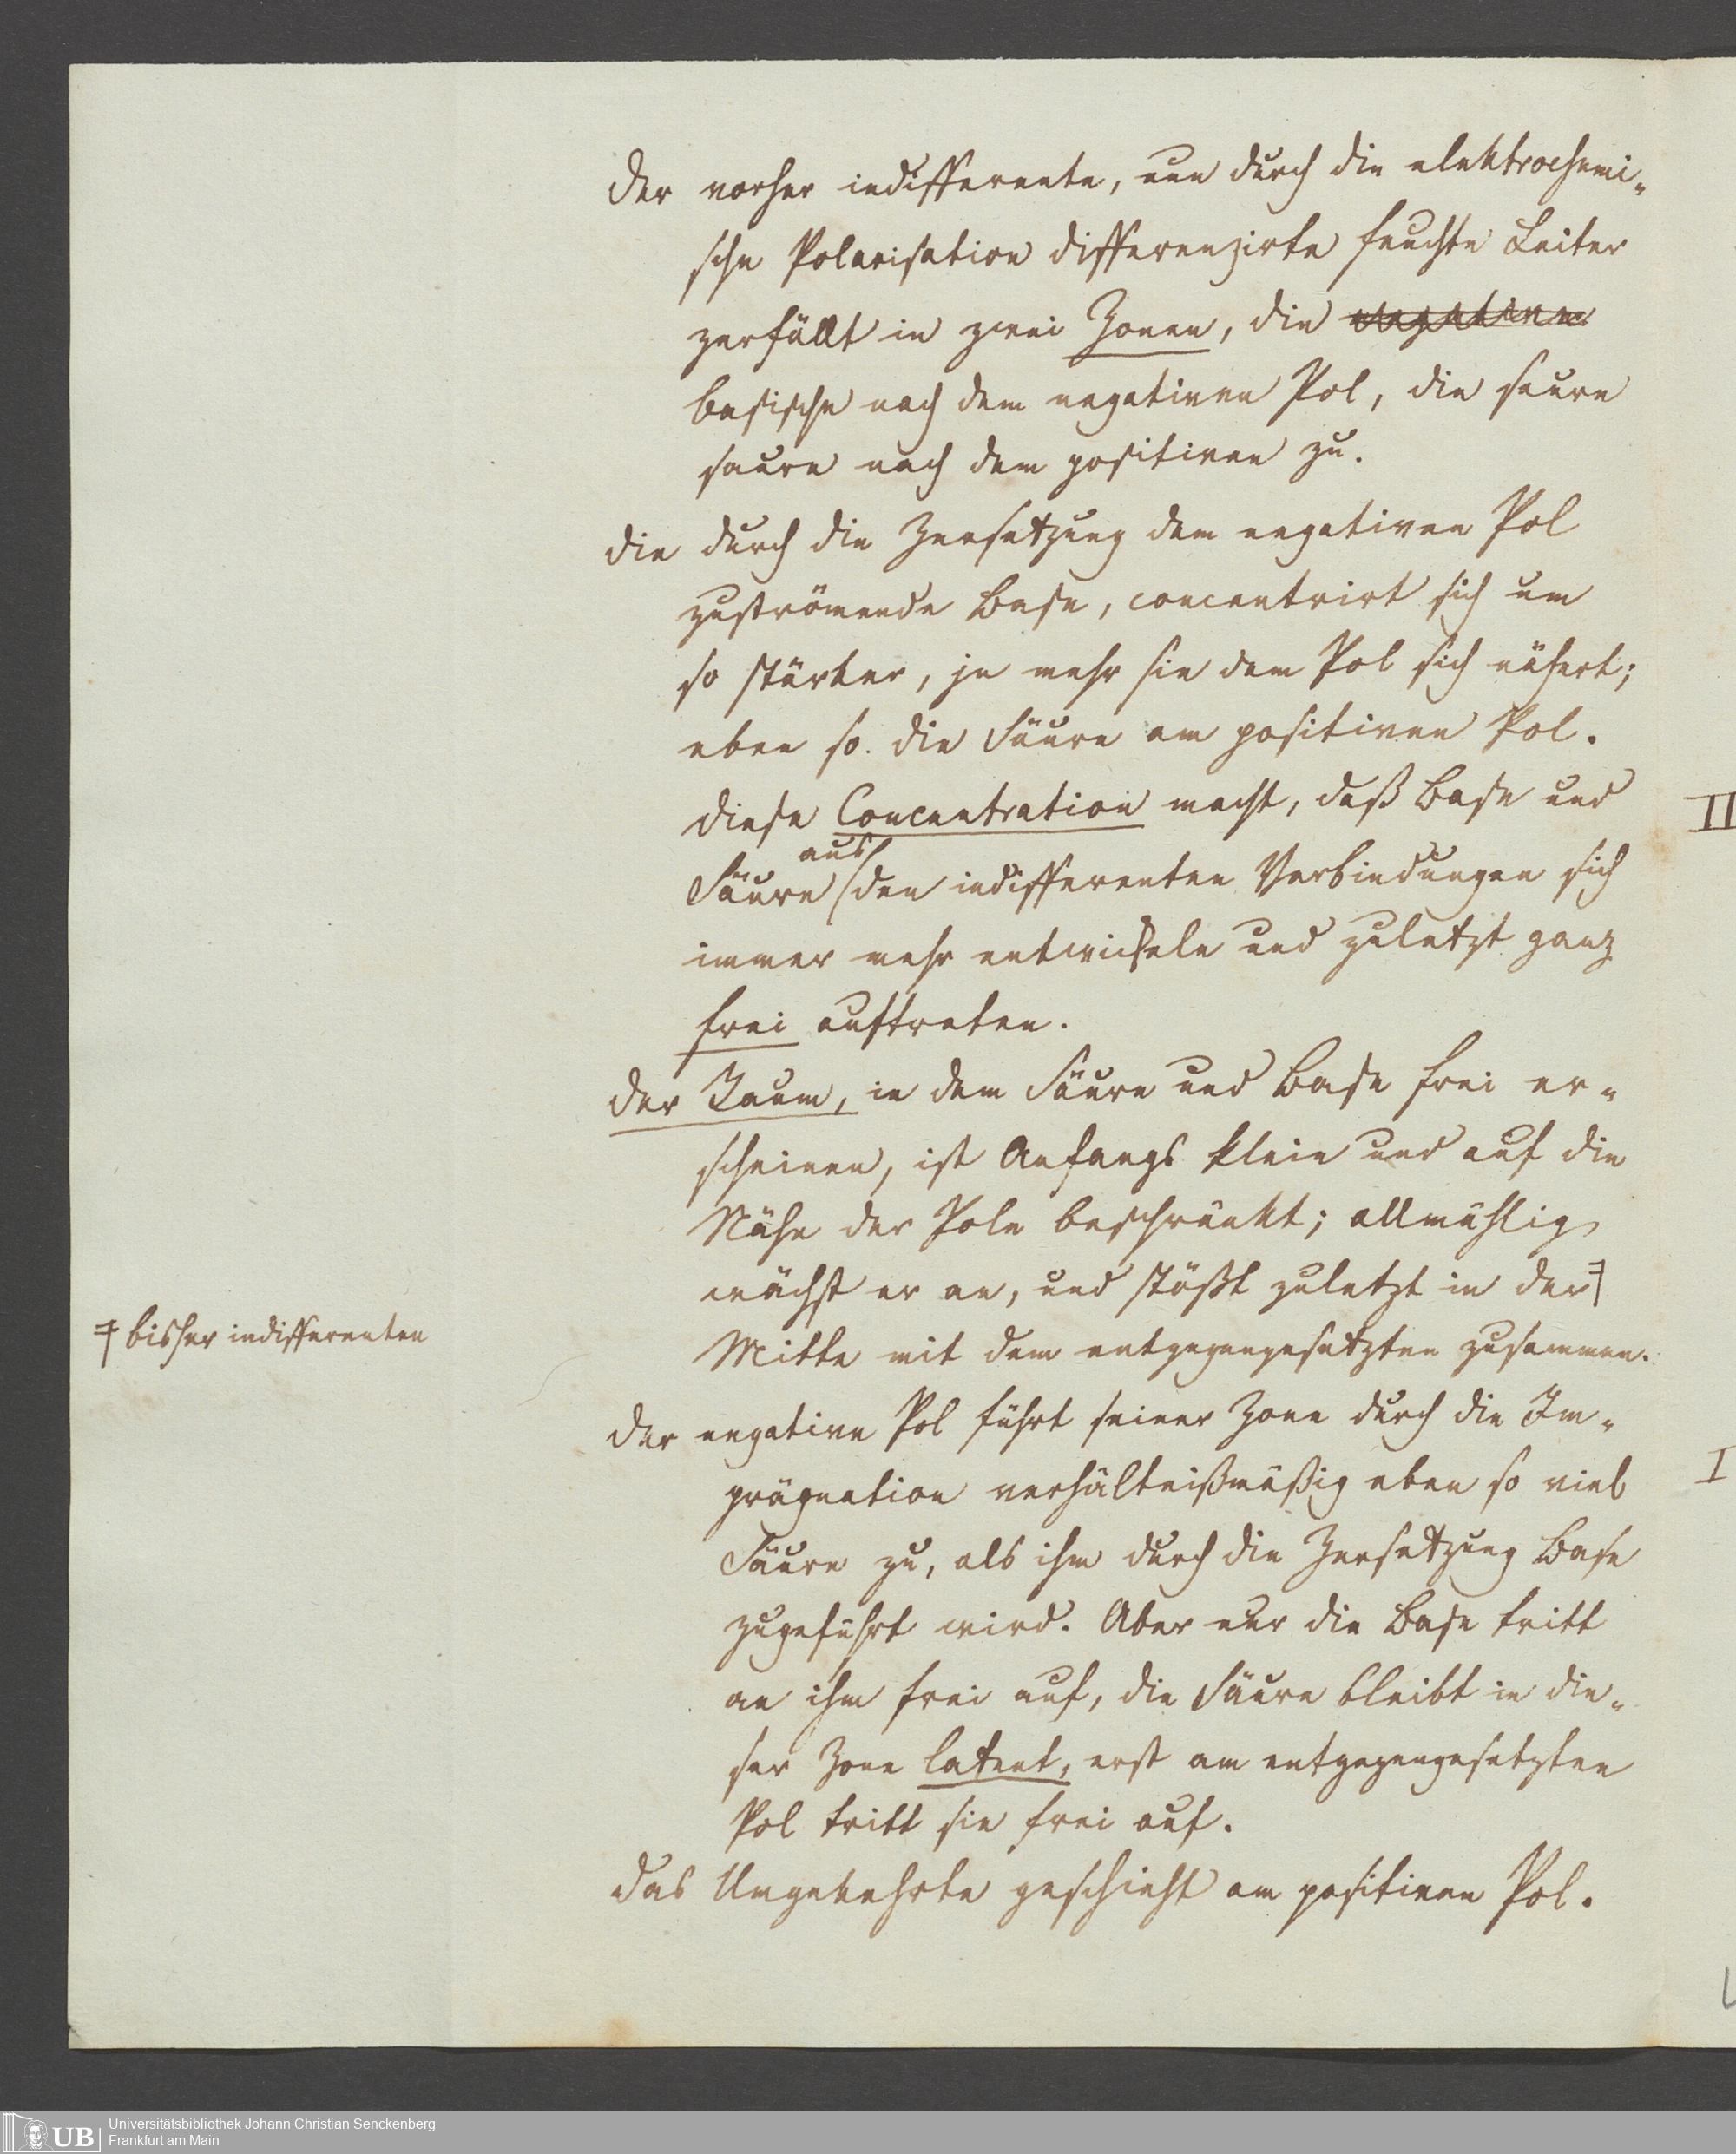 der vorher indifferente, nun durch die elektrochemi-
sche Polarisation differenzirte feuchte Leiter
zerfällt in zwei Zonen, die negative
basische nach dem negativen Pol, die saure
saure nach dem positiven zu.
die durch die Zersetzung dem negativen Pol
zuströmende Base, concentrirt sich um
so stärker, je mehr sie dem Pol sich nähert;
eben so die Säure am positiven Pol.
diese Concentration macht, daß Base und
Säure aus den indifferenten Verbindungen sich
immer mehr entwickeln und zuletzt ganz
frei auftreten.
der Raum, in dem Säure und Base frei er-
scheinen, ist Anfangs klein und auf die
Nähe der Pole beschränkt; allmählig
wächst er an, und stößt zuletzt in der
╡ bisher indifferenten
Mitte mit dem entgegengesetzten zusammen.
der negative Pol führt seiner Zone durch die Im-
prägnation verhältnißmäßig eben so viel
Säure zu, als ihm durch die Zersetzung Base
zugeführt wird. Aber nur die Base tritt
an ihm frei auf, die Säure bleibt in die-
ser Zone latent, erst am entgegengesetzten
Pol tritt sie frei auf.
das Umgekehrte geschieht am positiven Pol.
II
I
UB Universitätsbibliothek Johann Christian Senckenberg
Frankfurt am Main